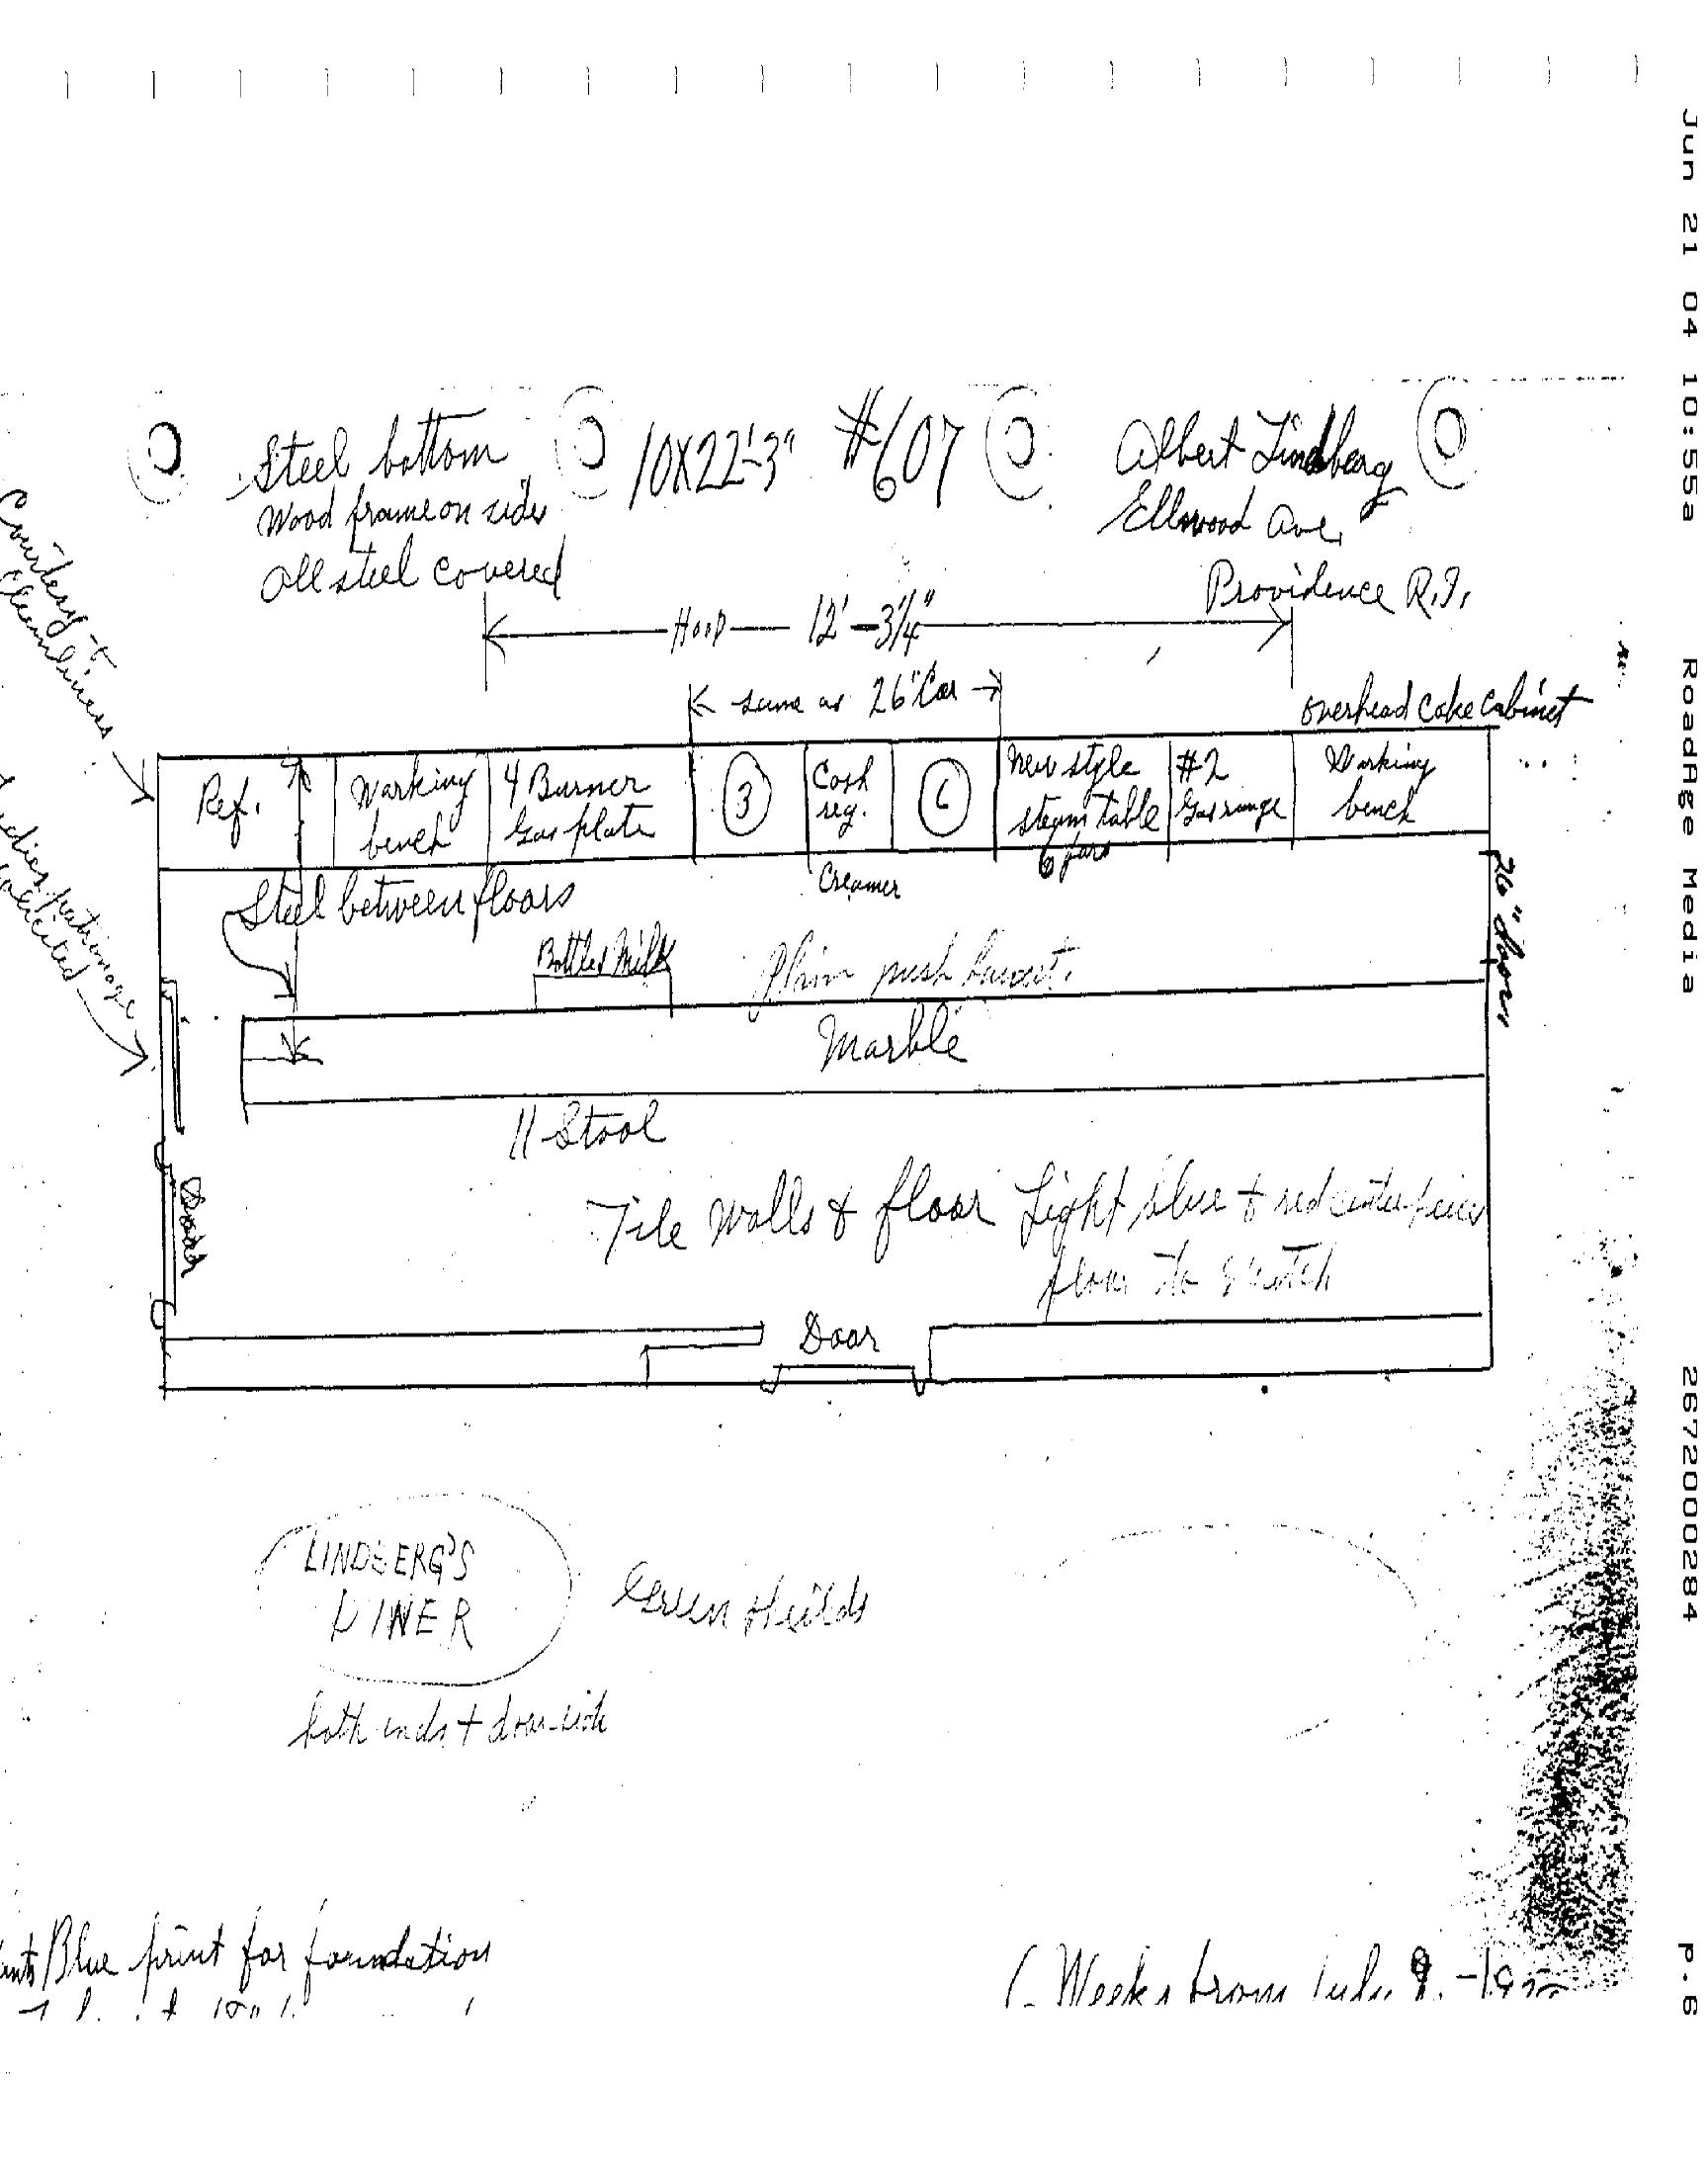 Jun 21 04 10:55a RoadAge Media 2672000284 P.6
Steel bottom
Wood frame on sides
All steel covered
10X22'-3"
#607
Albert Lindberg
Ellmwood Ave,
Providence R.I.
Courtesy &
Cleanliness
Hood 12'-3 1/4"
same as 26" Car
overhead cake cabinet
Ref.
Working
bench
4 Burner
Gas plate
3
Cash
reg.
6
New style
steam table
6 jars
#2
Gas range
Working
bench
Creamer
Steel between floors
26" Door
patronage
solicited
Bottled Milk
Plain push
Marble
11 Stool
Door
Tile walls & floor Light blue & red center piece
floor to sketch
Door
LINDBERG'S
DINER
Green Shields
both ends & door side
Blue print for foundation
Weeks from July 9. -19